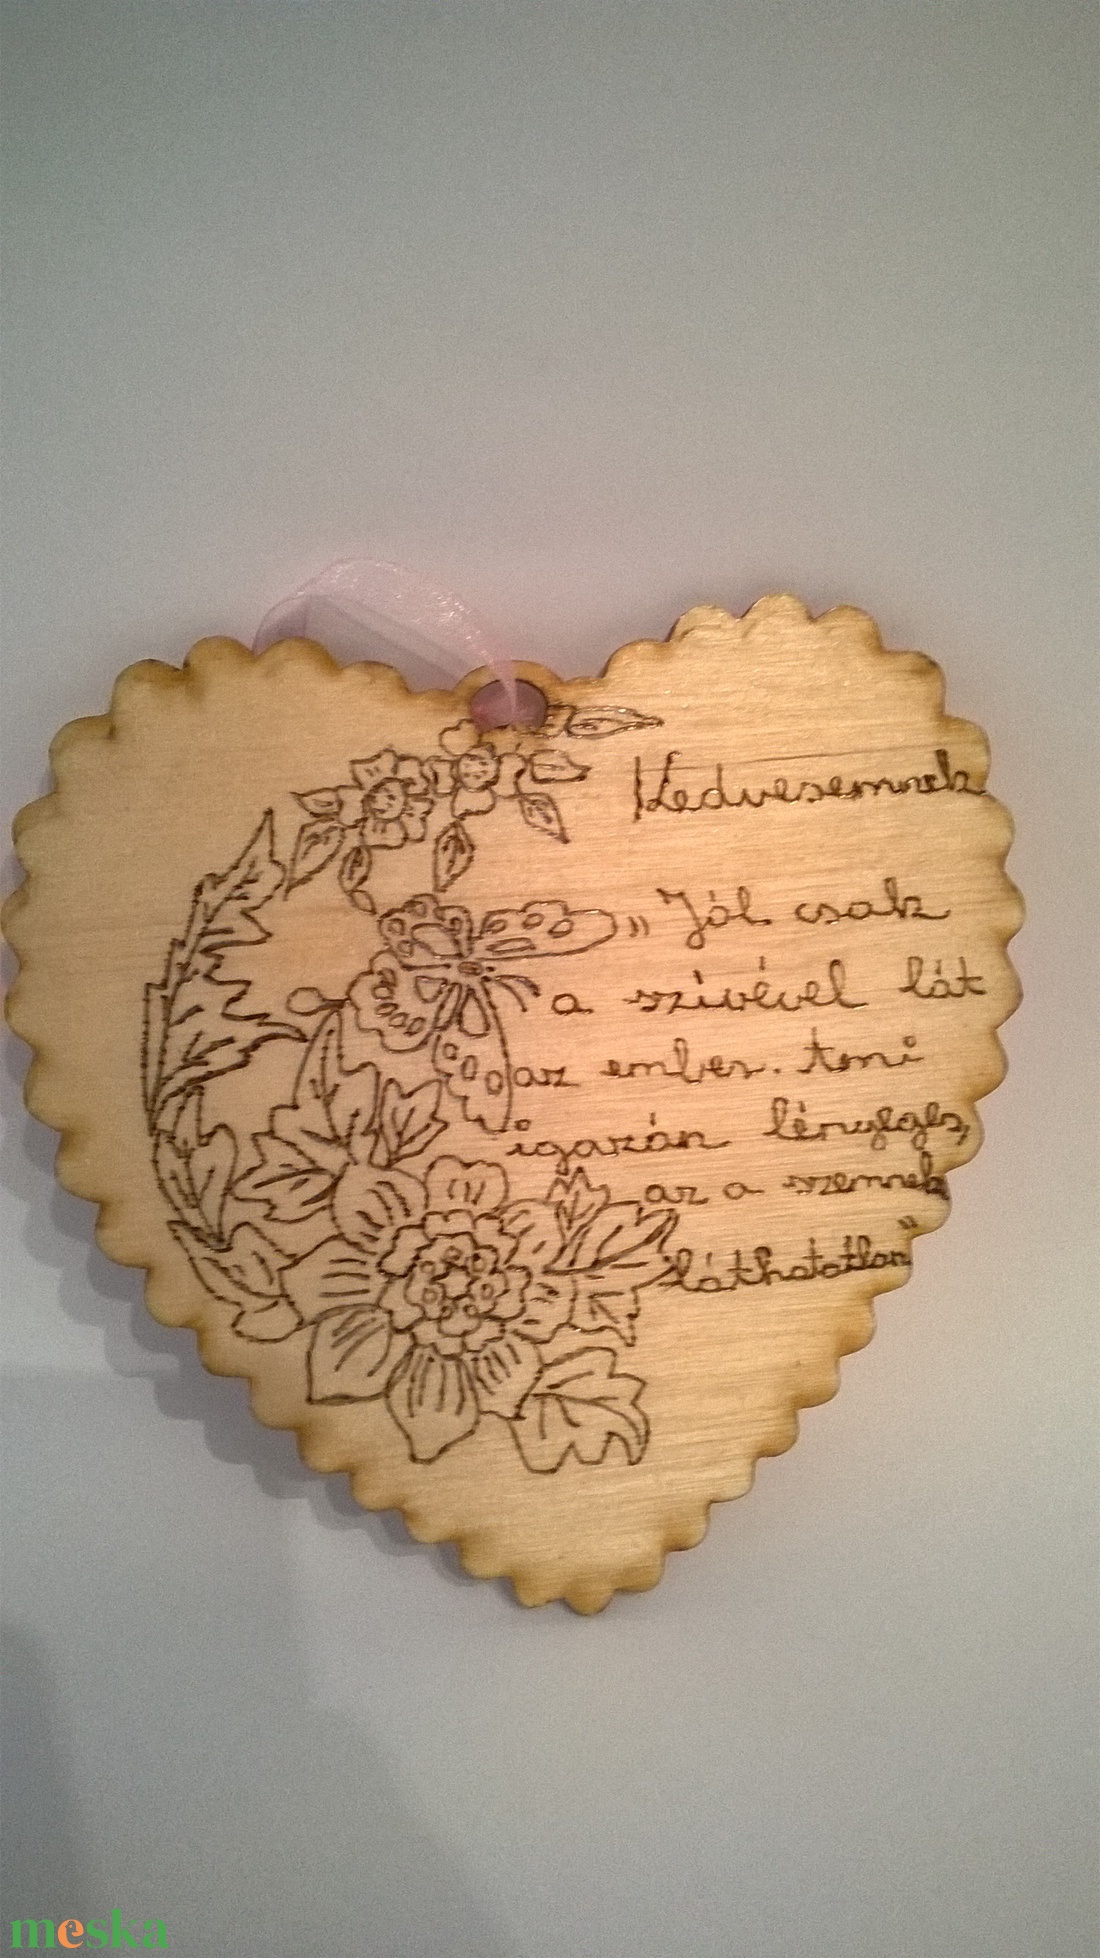 Kedvesemnek
„Jól csak
a szívével lát
az ember. Ami
igazán lényeges,
az a szemnek
láthatatlan”
meska